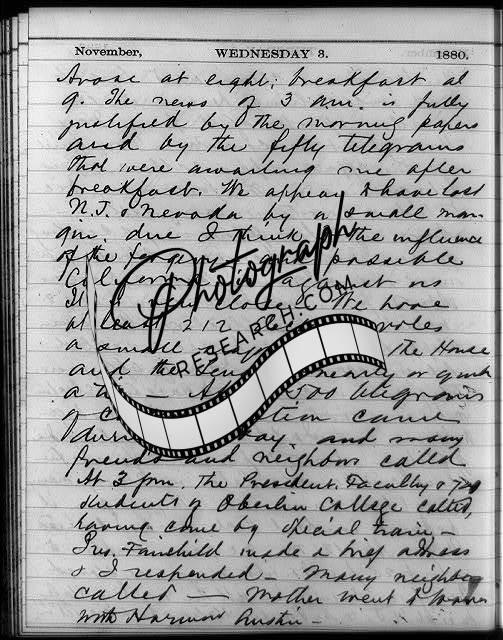 November, WEDNESDAY 3. 1880.
Arose at eight; breakfast at
9. The news of 3 a.m. is fully
justified by the morning papers
and by the fifty telegrams
that were awaiting me after
breakfast. We appear to have lost
N.J. & Nevada by a small mar-
gin due I think to the influence
of the forgery possible
California against us
It is close We have
at least 212 votes
a small the House
and the nearly or quite
a tie — 500 telegrams
of came
during day, and many
friends and neighbors called
At 3 p.m. The President, Faculty & 
students of Oberlin College called,
having come by special train—
Pres. Fairchild made a brief address
& I responded — Many neighbors
called — Mother went to
with Harmon Austin —
Photograph
RESEARCH.COM